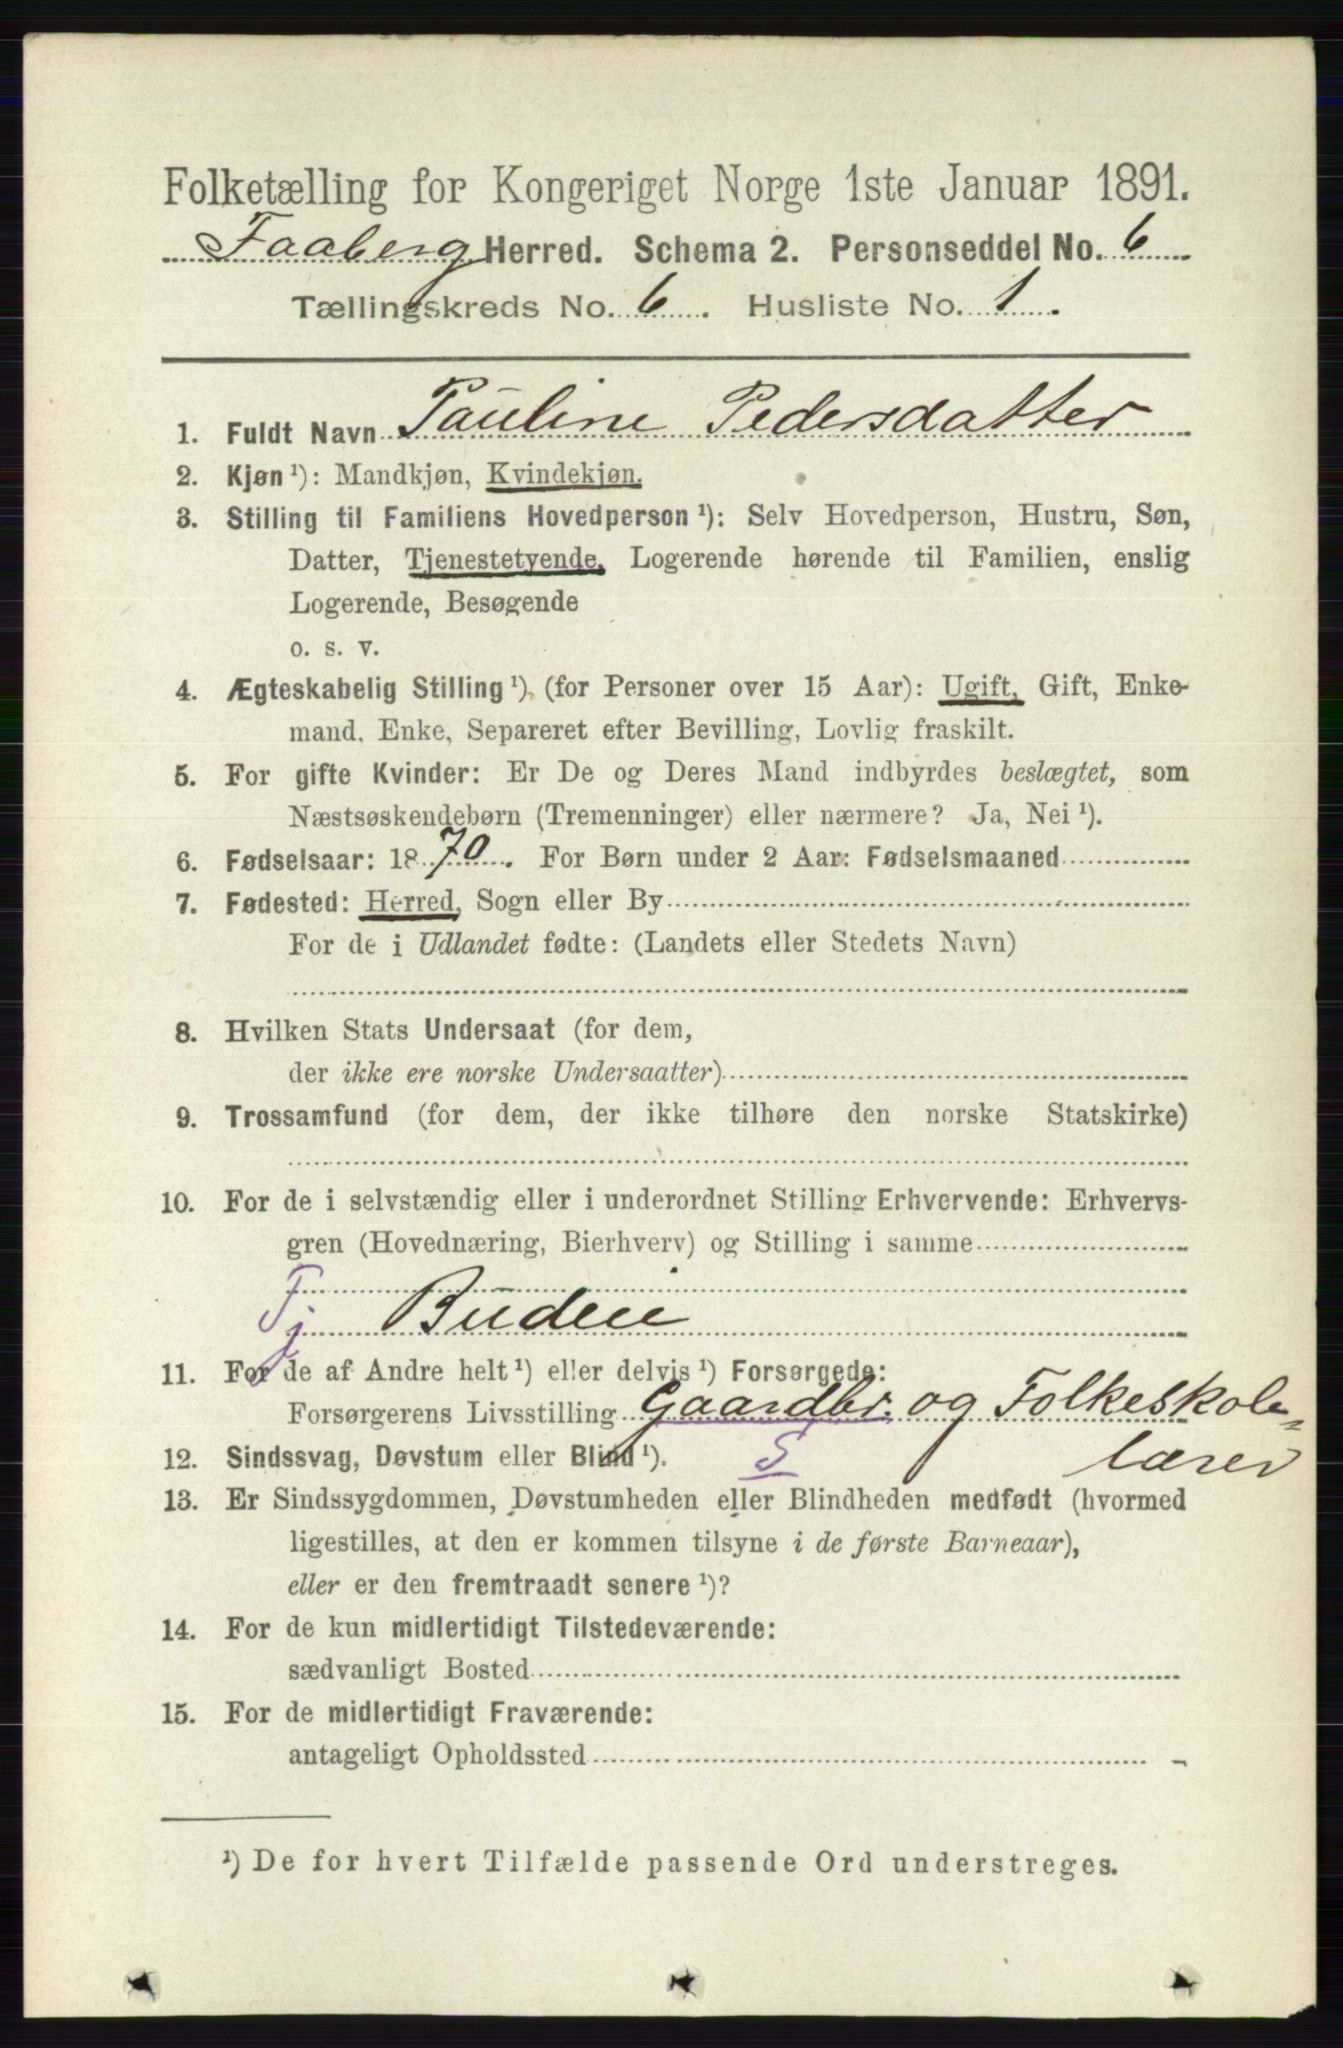 Folketælling for Kongeriget Norge 1ste Januar 1891.
Faaberg Herred. Schema 2. Personseddel No. 6
Tællingskreds No. 6. Husliste No. 1.
1. Fuldt Navn Pauline Pedersdatter
2. Kjøn ¹): Mandkjøn, Kvindekjøn.
3. Stilling til Familiens Hovedperson ¹): Selv Hovedperson, Hustru, Søn,
Datter, Tjenestetyende, Logerende hørende til Familien, enslig
Logerende, Besøgende
o. s. v.
4. Ægteskabelig Stilling ¹) (for Personer over 15 Aar): Ugift, Gift, Enke-
mand, Enke, Separeret efter Bevilling, Lovlig fraskilt.
5. For gifte Kvinder: Er De og Deres Mand indbyrdes beslægtet, som
Næstsøskendebørn (Tremenninger) eller nærmere? Ja, Nei ¹).
6. Fødselsaar: 1870. For Børn under 2 Aar: Fødselsmaaned
7. Fødested: Herred, Sogn eller By
For de i Udlandet fødte: (Landets eller Stedets Navn)
8. Hvilken Stats Undersaat (for dem,
der ikke ere norske Undersaatter)
9. Trossamfund (for dem, der ikke tilhøre den norske Statskirke)
10. For de i selvstændig eller i underordnet Stilling Erhvervende: Erhvervs-
gren (Hovednæring, Bierhverv) og Stilling i samme
Tj Budeie
11. For de af Andre helt ¹) eller delvis ¹) Forsørgede:
Forsørgerens Livsstilling Gaardbr. og Folkeskole=
12. Sindssvag, Døvstum eller Blind ¹). S lærer
13. Er Sindssygdommen, Døvstumheden eller Blindheden medfødt (hvormed
ligestilles, at den er kommen tilsyne i de første Barneaar),
eller er den fremtraadt senere ¹)?
14. For de kun midlertidigt Tilstedeværende:
sædvanligt Bosted
15. For de midlertidigt Fraværende:
antageligt Opholdssted
¹) De for hvert Tilfælde passende Ord understreges.